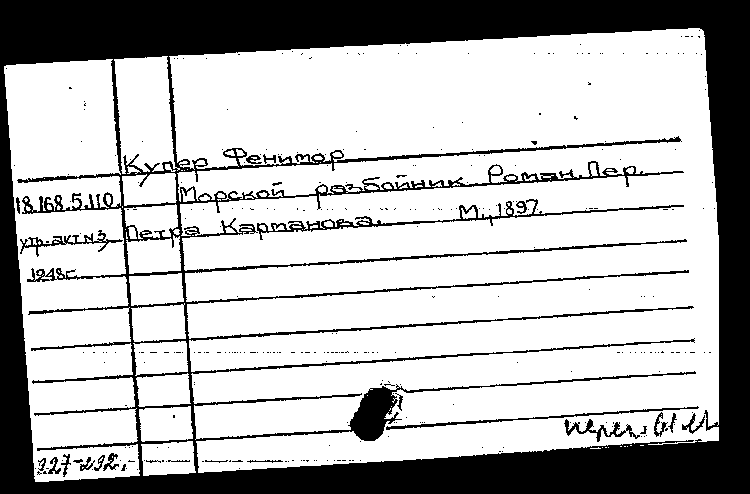 Купер Фенимор
18.168.5.110. Морской разбойник. Роман. Пер.
утр. акт №3 Петра Карманова. М., 1897.
1948г.
227-292.